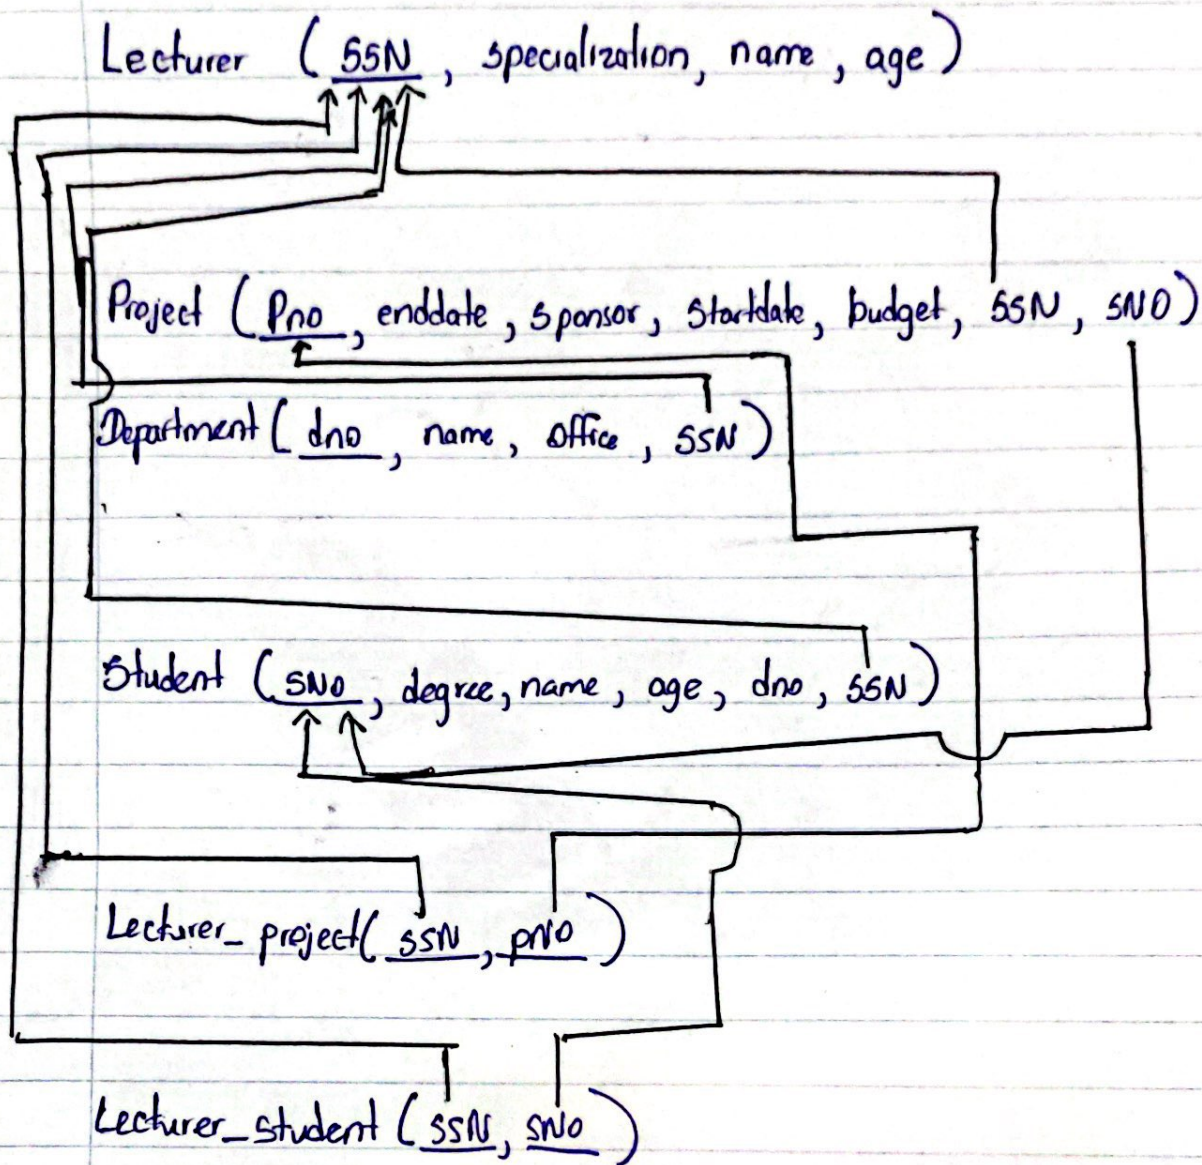 Lecturer (SSN, specialization, name, age)
Project (Pno, enddate, sponsor, startdate, budget, SSN, SNO)
Department (dno, name, office, SSN)
Student (SNO, degree, name, age, dno, SSN)
Lecturer_project(SSN, pNO)
Lecturer_student (SSN, SNO)